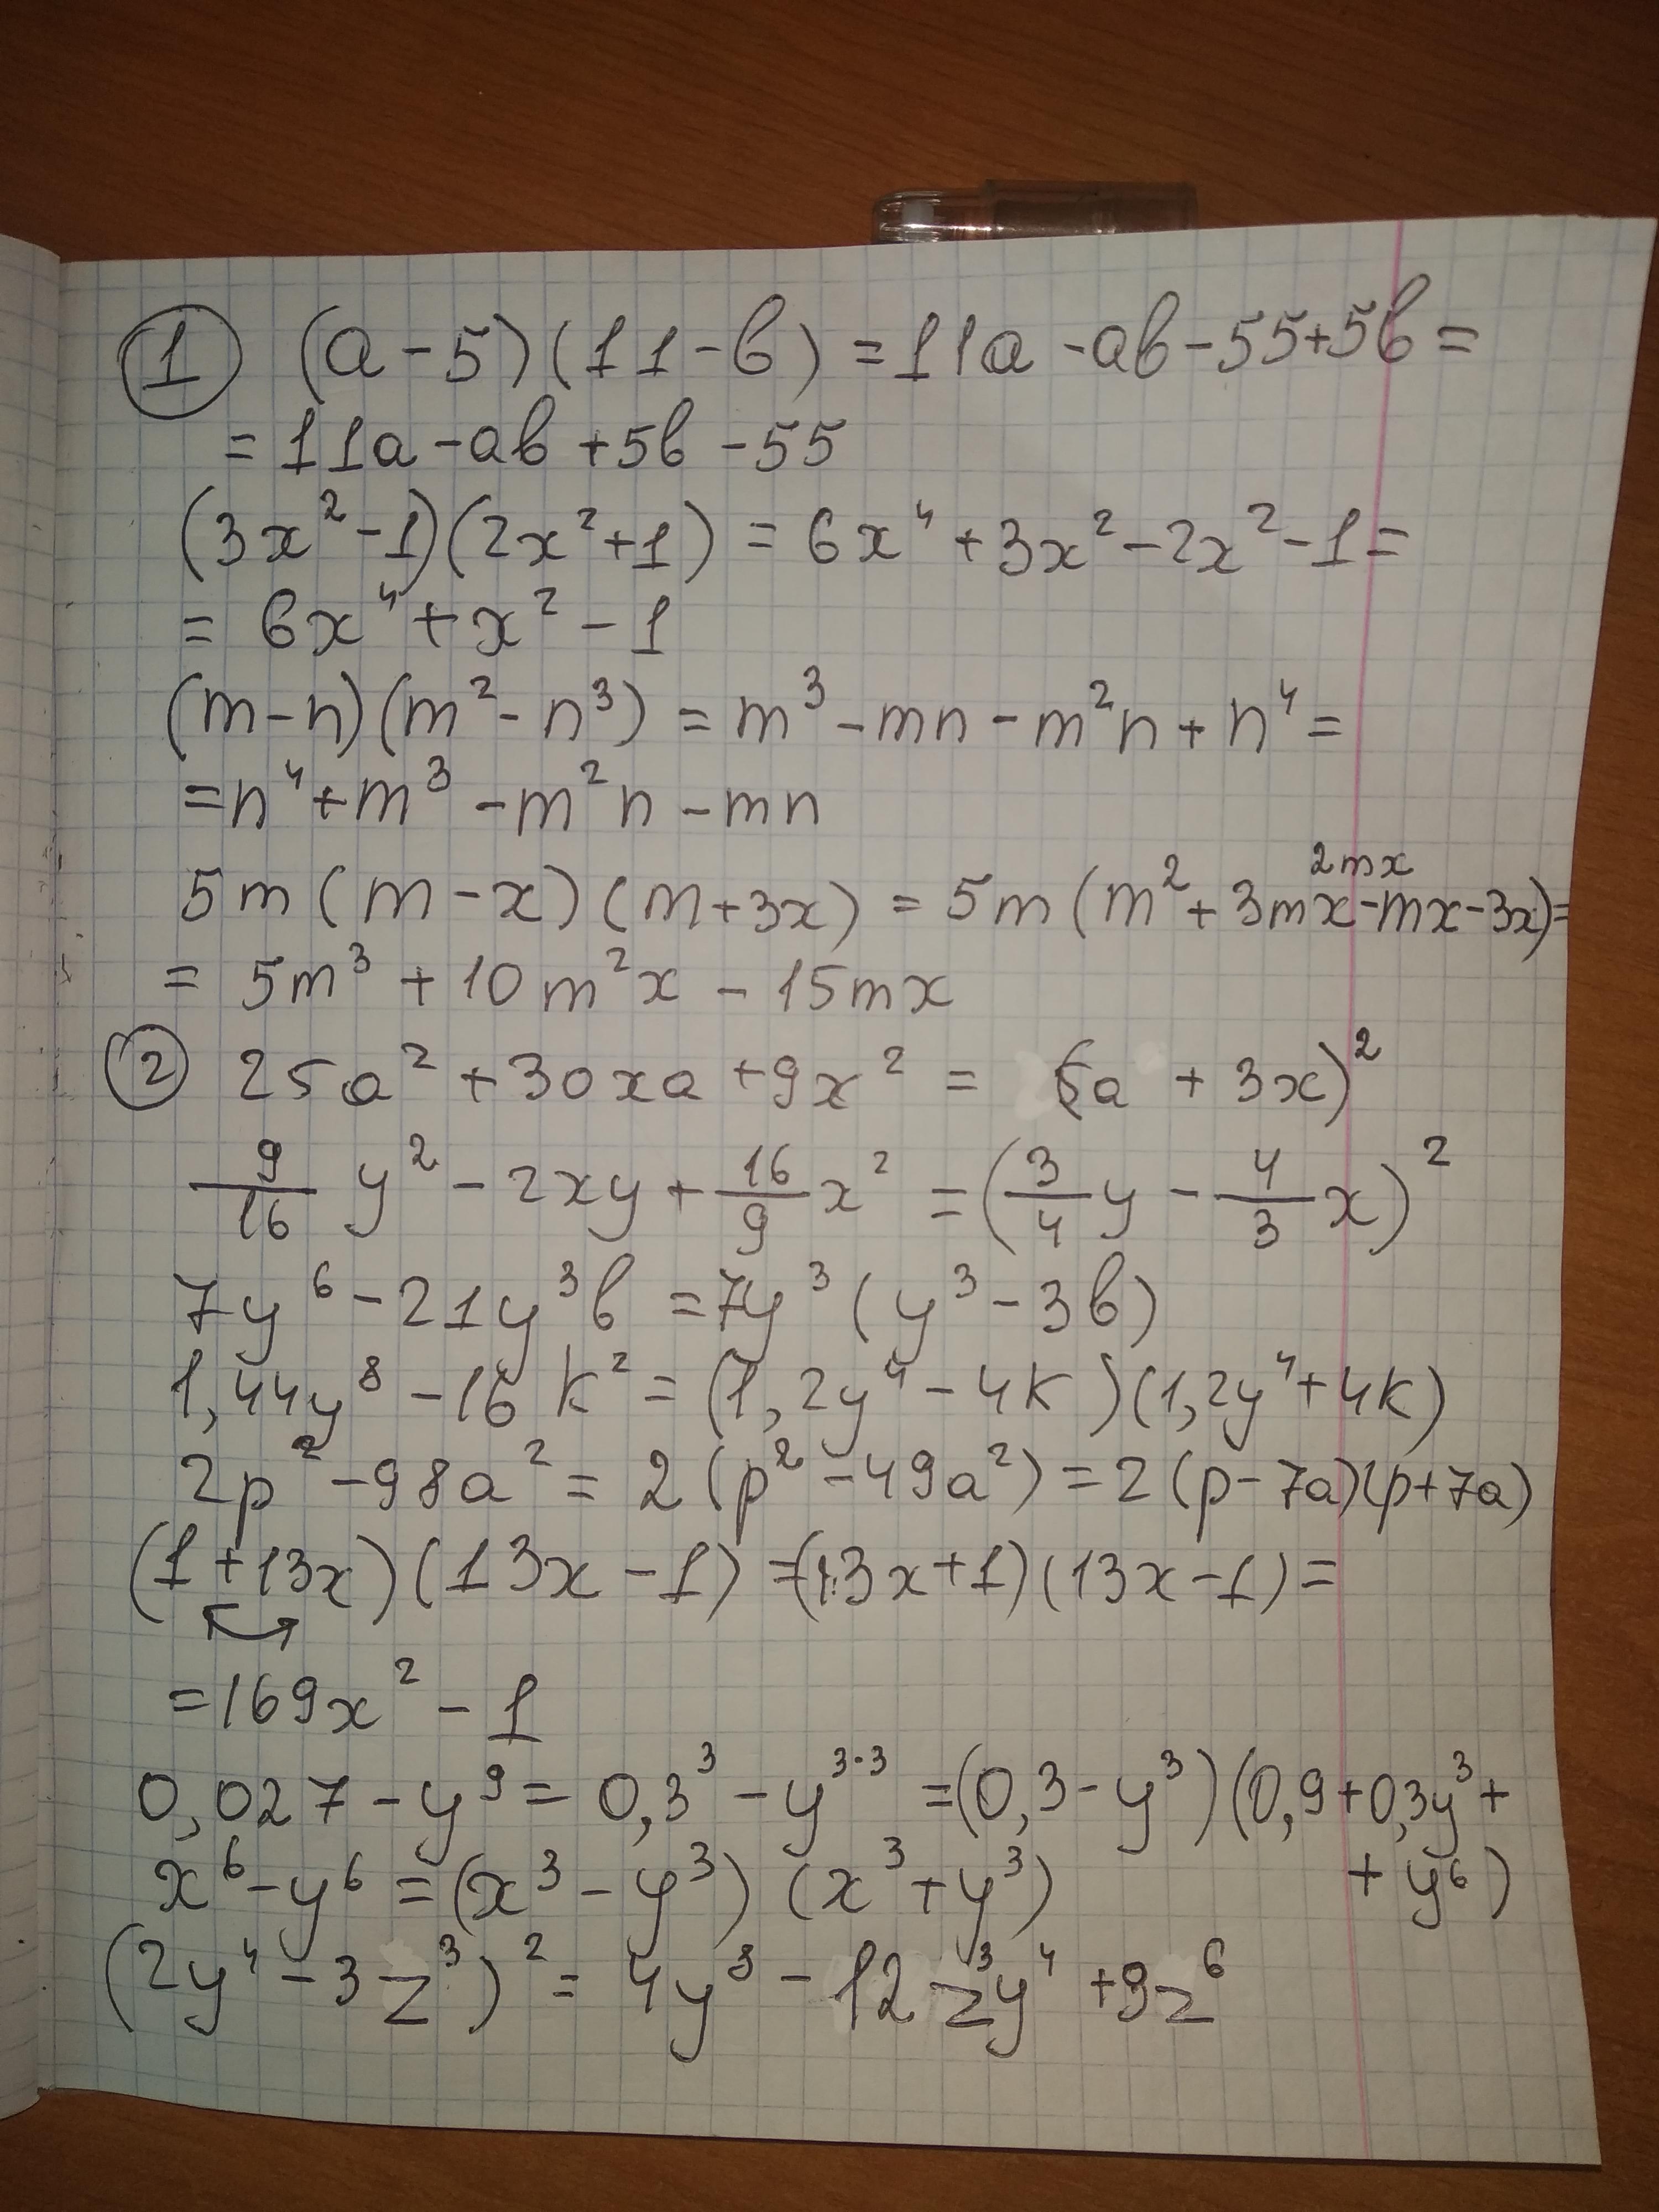 ① (a-5)(11-b)=11a-ab-55+5b=
=11a-ab+5b-55
(3x²-1)(2x²+1)=6x⁴+3x²-2x²-1=
=6x⁴+x²-1
(m-n)(m²-n³)=m³-mn-m²n+n⁴=
=n⁴+m³-m²n-mn
2mx
5m(m-x)(m+3x)=5m(m²+3mx-mx-3x)=
=5m³+10m²x-15mx
② 25a²+30xa+9x²=(5a+3x)²
9/16 y²-2xy+16/9 x²=(3/4 y-4/3 x)²
7y⁶-21y³b=7y³(y³-3b)
1,44y⁸-16k²=(1,2y⁴-4k)(1,2y⁴+4k)
2p²-98a²=2(p²-49a²)=2(p-7a)(p+7a)
(1+13x)(13x-1)=(13x+1)(13x-1)=
=169x²-1
0,027-y⁹=0,3³-y³·³=(0,3-y³)(0,9+0,3y³+
+y⁶)
x⁶-y⁶=(x³-y³)(x³+y³)
(2y⁴-3z³)²=4y⁸-12z³y⁴+9z⁶